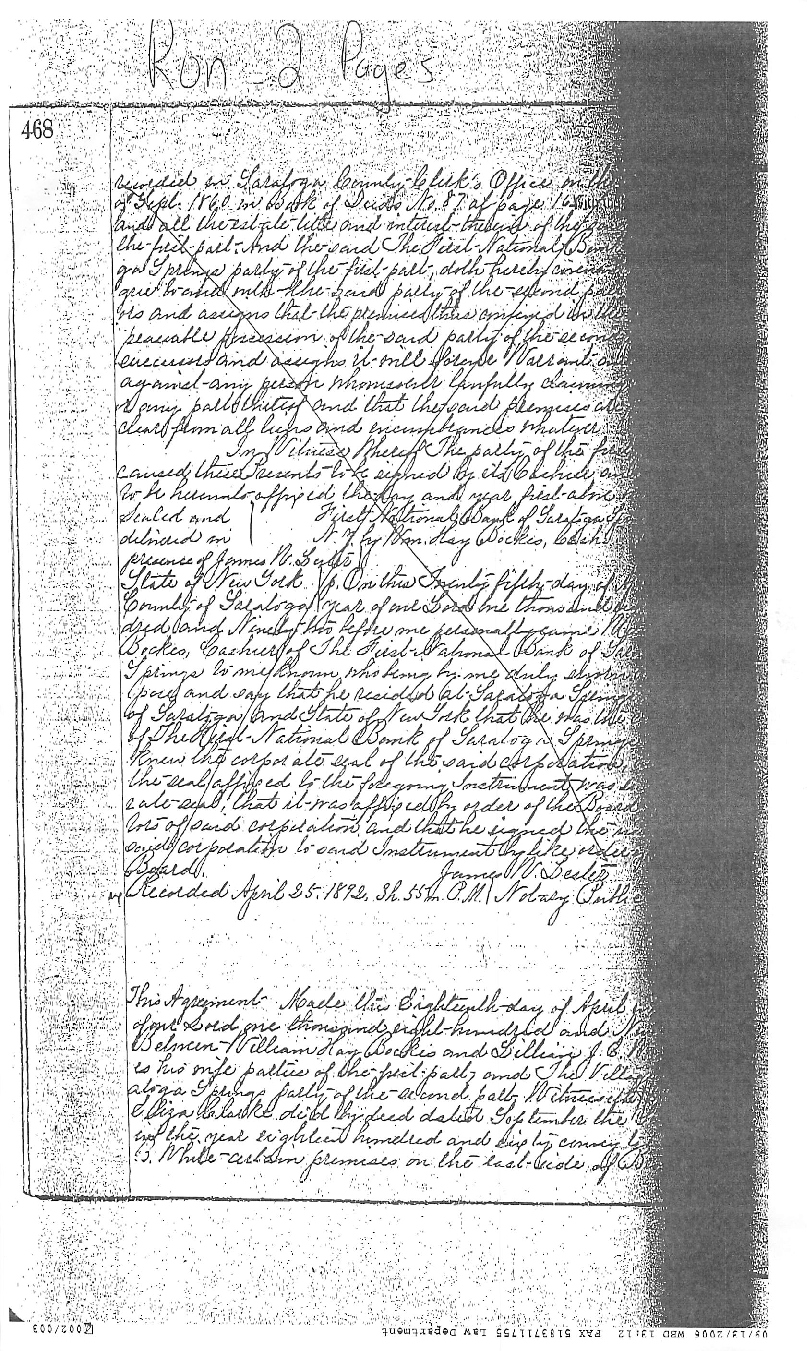 Ron - 2 Pages
468
recorded in Saratoga County Clerk's Office on the
of Sept. 1860 in Book of Deeds No. 87 at page
and all the estate title and interest therein of the
the first part. And the said The First National Ban
ga Springs party of the first part, doth hereby
gree to and with the said party of the second par
ors and assigns that the premises thus conveyed in the
peaceable possession of the said party of the secon
successors and assigns it will forever Warrant
against any person whomsoever lawfully claiming
or any part thereof and that the said premises are
clear from all liens and encumbrances whatever
In Witness Whereof The party of the firs
caused these Presents to be signed by its Cashier an
to be hereunto affixed the day and year first abov
Sealed and First National Bank of Saratoga
delivered in N.Y. by Wm. Hay Bockes, Cash
presence of James W. Lester
State of New York On this Twenty fifth day of
County of Saratoga year of our Lord one thousand
dred and Ninety two before me personally came
Bockes, Cashier of The First National Bank of
Springs to me known, who being by me duly sworn
pose and say that he resided at Saratoga Spring
of Saratoga and State of New York that he was the
of The First National Bank of Saratoga Springs
knew the corporate seal of the said corporation,
the seal affixed to the foregoing Instrument was
rate seal, that it was affixed by order of the Board
tors of said corporation, and that he signed the
said corporation to said Instrument by like order
Board. James W. Lester
Recorded April 25. 1892. 3h. 55m. P.M. Notary Public
This Agreement Made the Eighteenth day of April
of our Lord one thousand eight hundred and
Between William Hay Bockes and Lillian J. C.
es his wife parties of the first part, and The Vill
atoga Springs party of the second part, Witnesseth
Eliza Clarke did by deed dated September the
in the year eighteen hundred and sixty convey
White certain premises on the east side of
09/13/2006 WED 13:12 FAX 5183711755 Law Department
002/003